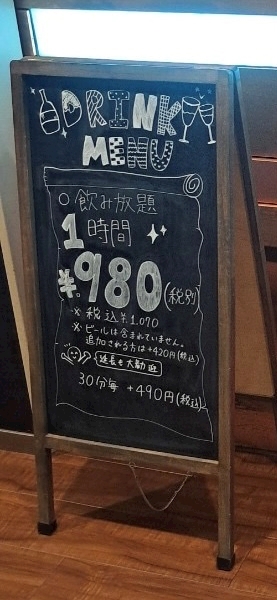 DRINK
MENU
○ 飲み放題
1時間
¥980(税別)
※ 税込¥1,070
※ ビールは含まれていません。
追加される方は+420円(税込)
延長も大歓迎
30分毎 +490円(税込)